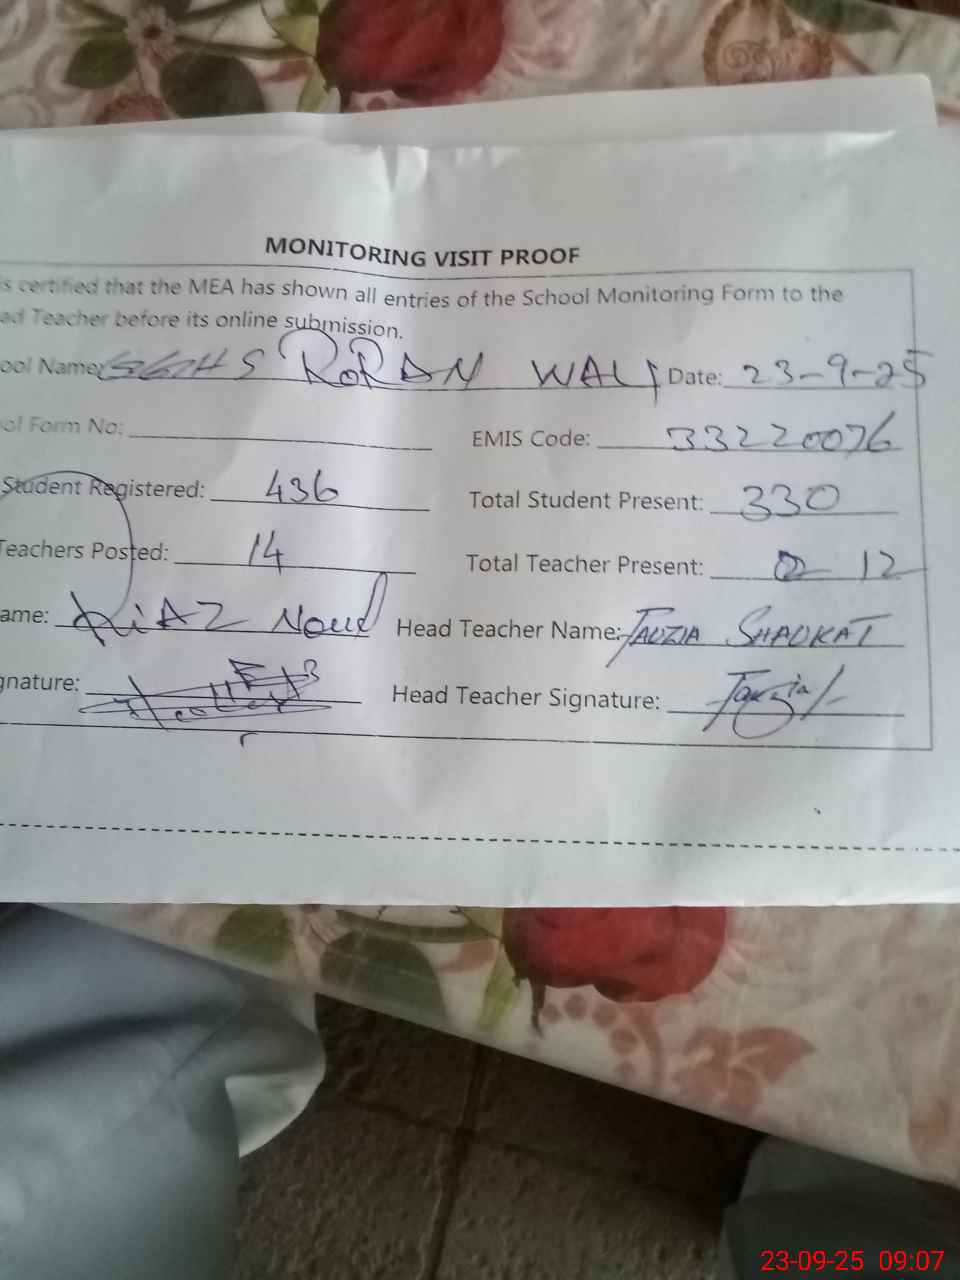 MONITORING VISIT PROOF
is certified that the MEA has shown all entries of the School Monitoring Form to the
ad Teacher before its online submission.
ool Name: GGHS RORAN WALI Date: 23-9-25
ol Form No: EMIS Code: 33220076
Student Registered: 436 Total Student Present: 330
Teachers Posted: 14 Total Teacher Present: 12
ame: RiAZ Head Teacher Name: FAUZIA SHAUKAT
gnature: Head Teacher Signature: Fauzia
23-09-25 09:07